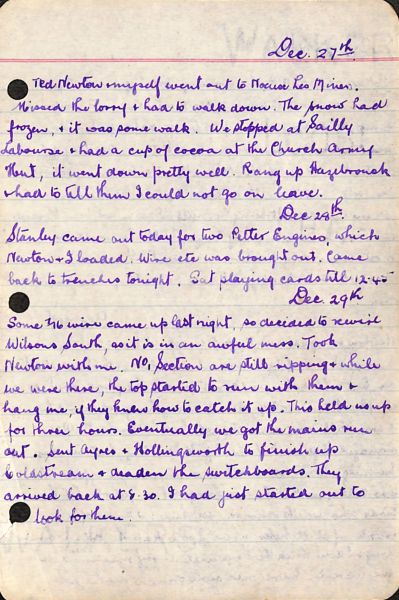 Dec. 27th.
Ted Newton & myself went out to Noeux les Mines.
Missed the lorry & had to walk down. The snow had
frozen, & it was some walk. We stopped at Sailly
Labourse & had a cup of cocoa at the Church Army
Hut, it went down pretty well. Rang up Hazebrouck
& had to tell them I could not go on leave.
Dec 28th.
Stanley came out today for two Petter Engines, which
Newton & I loaded. Wire etc was brought out. Came
back to trenches tonight. Sat playing cards till 12-45
Dec. 29th
Some 7/16 wire came up last night, so decided to rewire
Wilsons South, as it is in an awful mess. Took
Newton with me. No 1 Section are still ripping & while
we were there, the top started to run with them &
hang me, if they knew how to catch it up. This held us up
for three hours. Eventually we got the mains run
out. Sent Ayres & Hollingsworth to finish up
Coldstream & deaden the switchboards. They
arrived back at 8.30. I had just started out to
look for them.